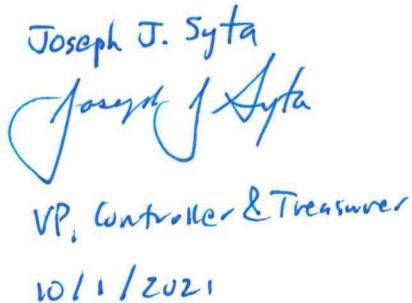 Joseph J. Syta
Joseph J Syta
VP, Controller & Treasurer
10/1/2021